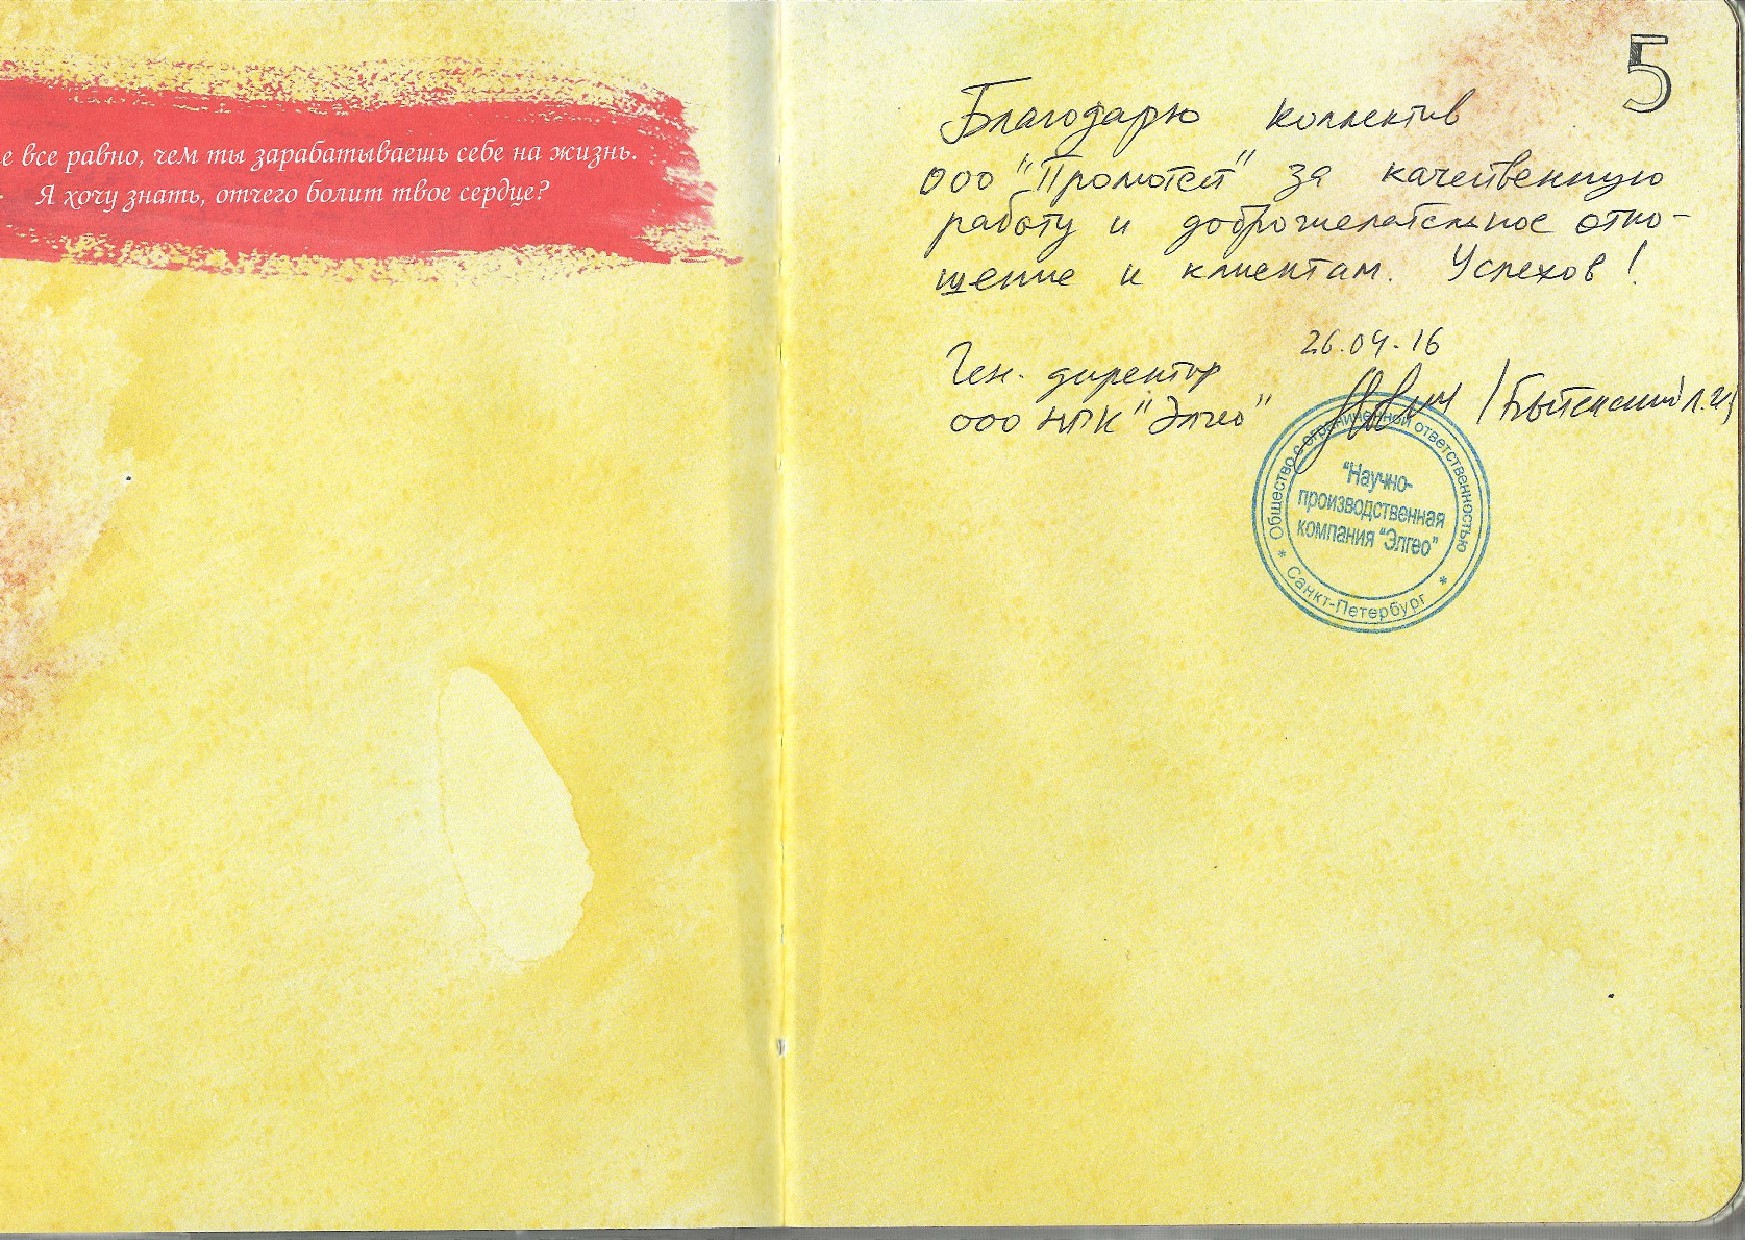 е все равно, чем ты зарабатываешь себе на жизнь.
Я хочу знать, отчего болит твое сердце?
5
Благодарю коллектив
ООО "Промотет" за качественную
работу и доброжелательное отно-
шение к клиентам. Успехов!
26.04.16
Ген. директор
ООО НПК "Элгео"
Общество с ограниченной ответственностью
"Научно-
производственная
компания "Элгео"
* Санкт-Петербург *